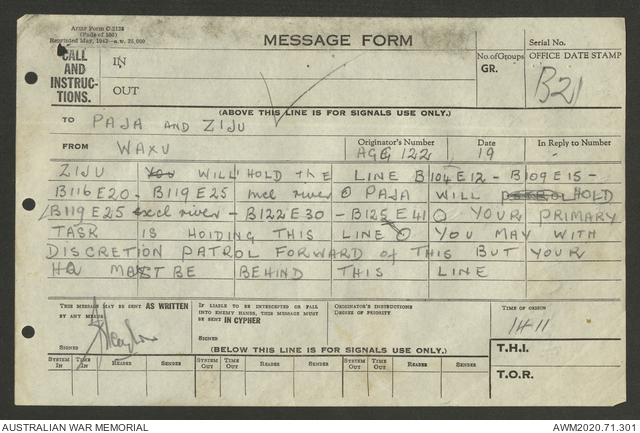 Army Form C.2128
(Pads of 100)
MESSAGE FORM
Serial No.
CALL
AND
INSTRUC-
TIONS.
IN
OUT
No. of Groups
GR.
OFFICE DATE STAMP
B21
(ABOVE THIS LINE IS FOR SIGNALS USE ONLY.)
TO PAJA AND ZIJU
FROM WAXU
Originator's Number
AGG 122
Date
19
In Reply to Number
-
ZIJU You WILL HOLD the LINE B104E12 - B109E15 -
B116E20 - B119E25 incl river O PAJA WILL PATROL HOLD
B119E25 excl river - B122E30 - B125E41 O YOUR PRIMARY
TASK IS HOIDING THIS LINE O YOU MAY WITH
DISCRETION PATROL FORWARD of THIS BUT YOUR
HQ MUST BE BEHIND THIS LINE
THIS MESSAGE MAY BE SENT AS WRITTEN
BY ANY MEANS
SIGNED
IF LIABLE TO BE INTERCEPTED OR FALL
INTO ENEMY HANDS, THIS MESSAGE MUST
BE SENT IN CYPHER
SIGNED
ORIGINATOR'S INSTRUCTIONS
DEGREE OF PRIORITY
TIME OF ORIGIN
1411
(BELOW THIS LINE IS FOR SIGNALS USE ONLY.)
T.H.I.
T.O.R.
SYSTEM IN TIME IN READER SENDER SYSTEM OUT TIME OUT READER SENDER SYSTEM OUT TIME OUT READER SENDER
AUSTRALIAN WAR MEMORIAL
AWM2020.71.301